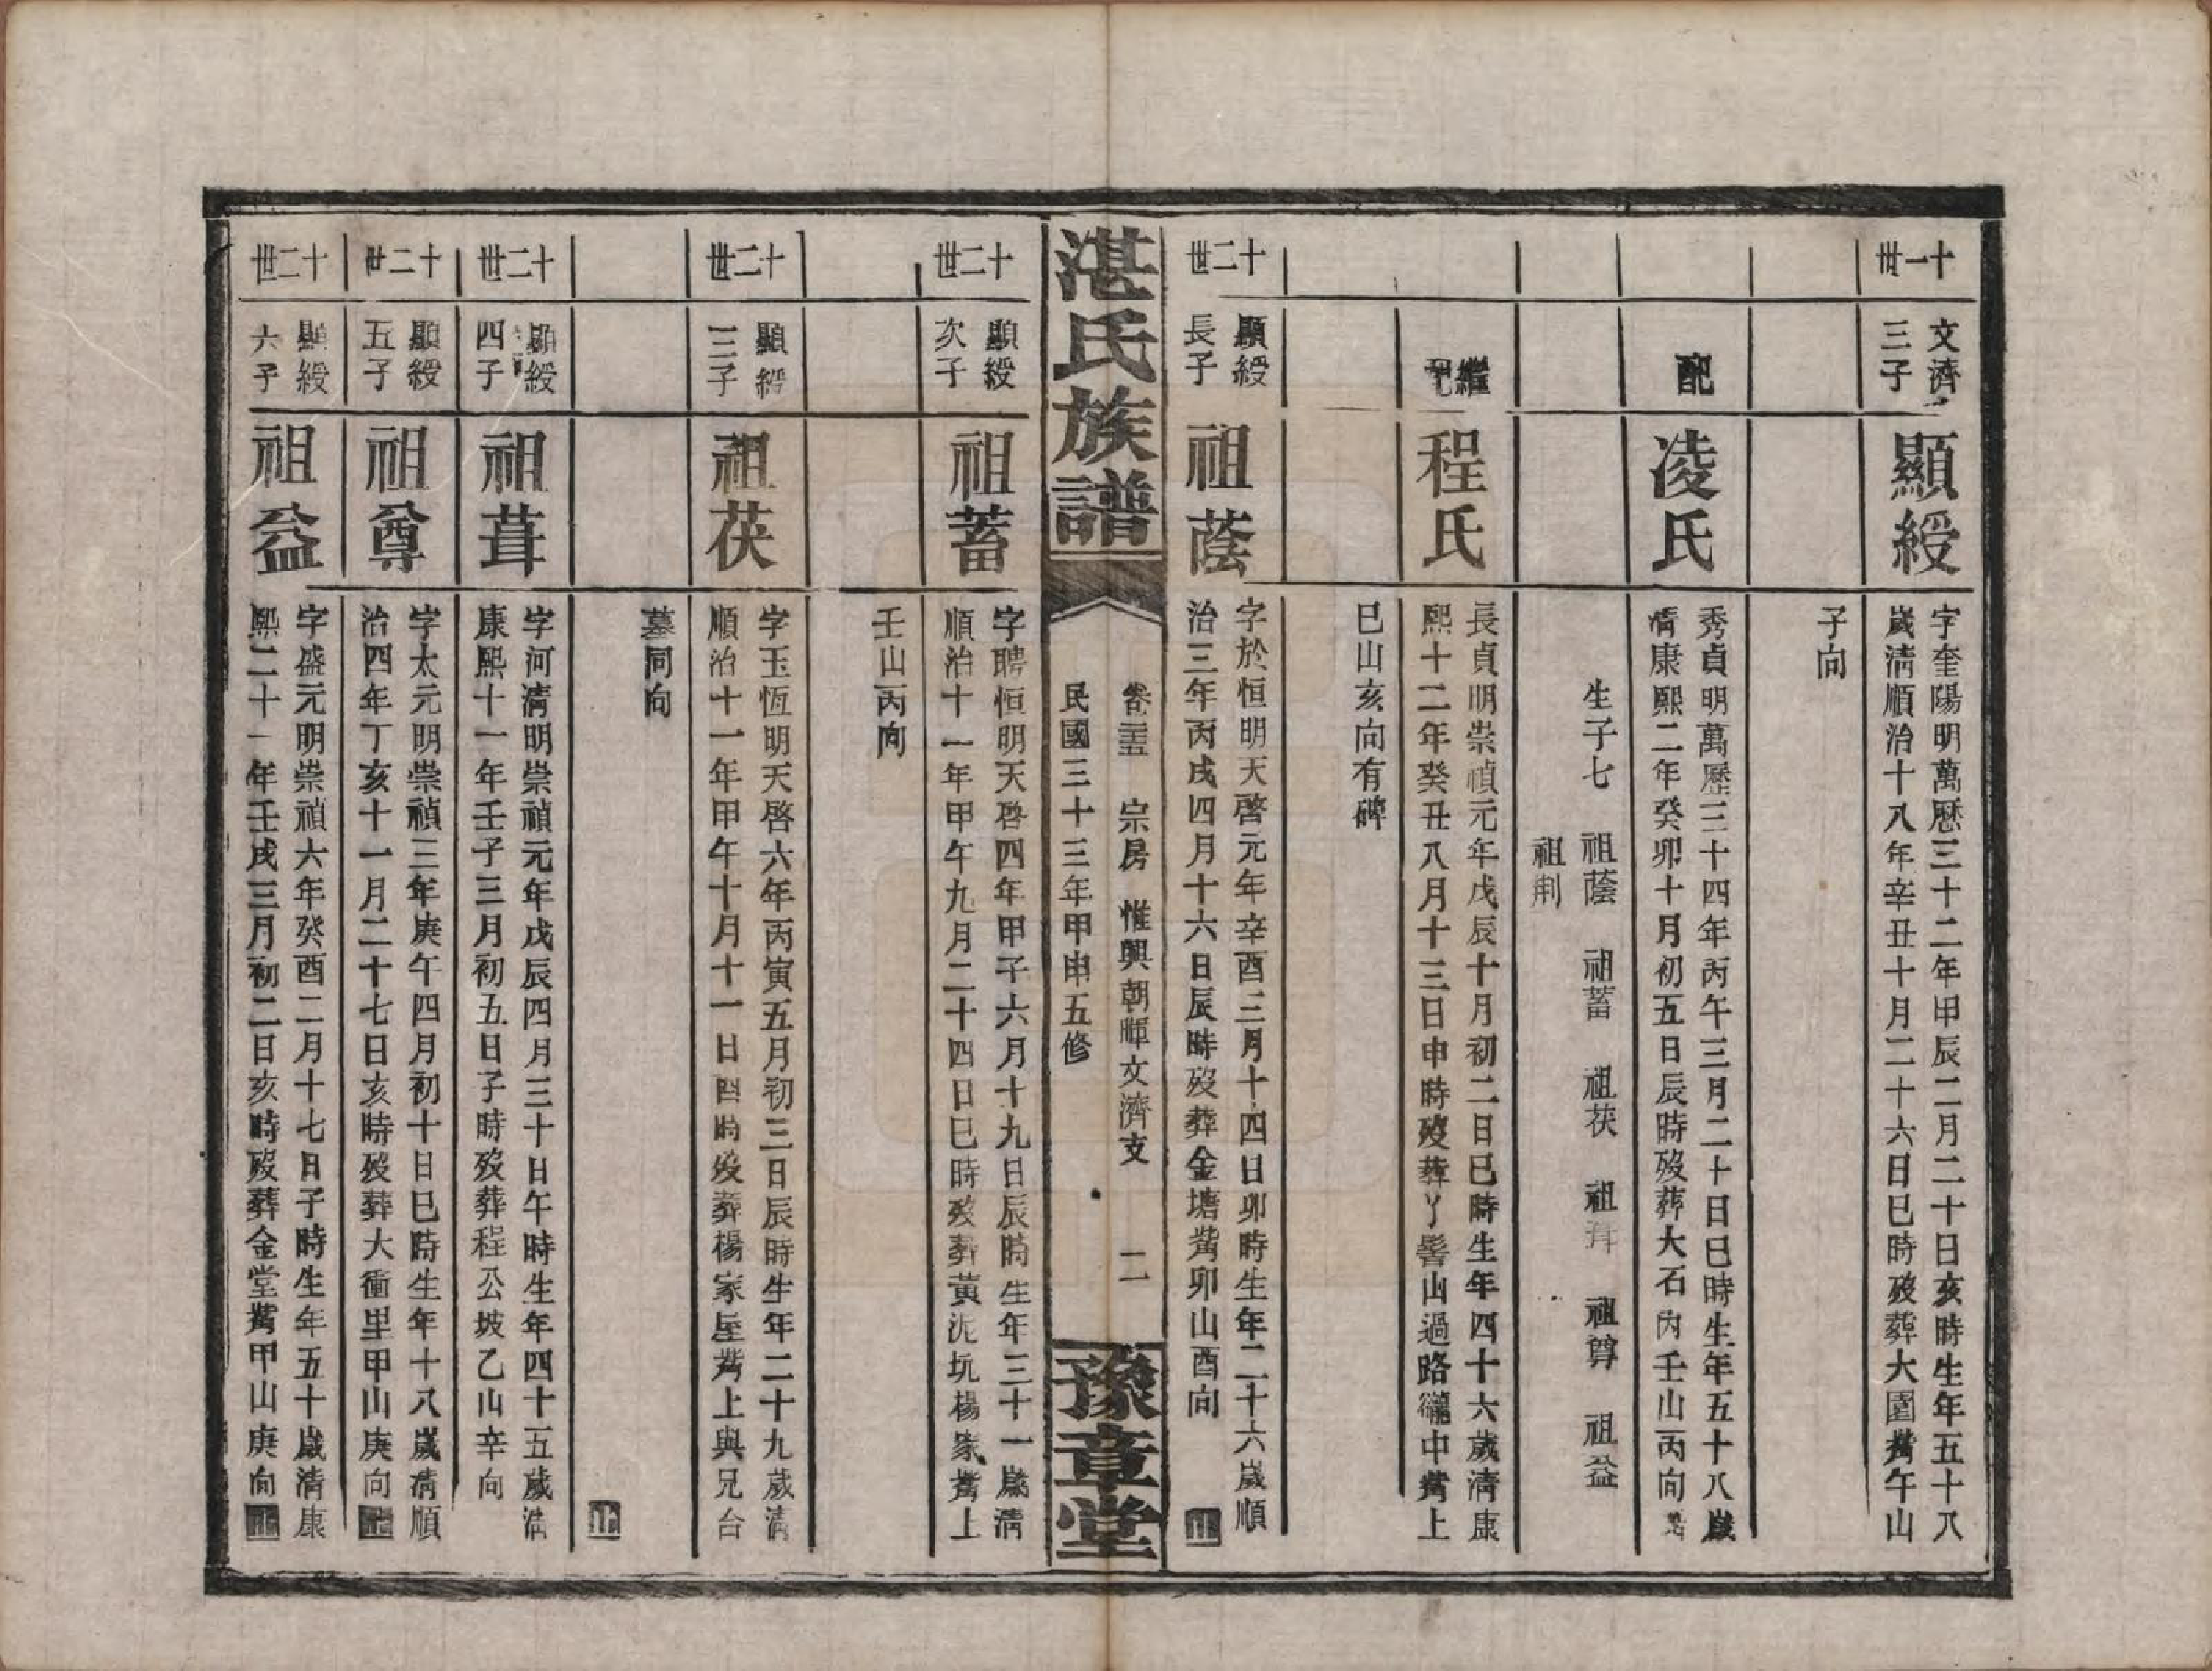 十一世
文濟
三子
顯綬
字奎陽明萬歷三十二年甲辰二月二十日亥時生年五十八
歲清順治十八年辛丑十月二十六日巳時歿葬大園觜午山
子向
配
凌氏
秀貞明萬歷三十四年丙午三月二十日巳時生年五十八歲
清康熙二年癸卯十月初五日辰時歿葬大石內壬山丙向
生子七 祖蔭 祖蓄 祖茯 祖葺 祖尊 祖益
祖荆
繼配
程氏
長貞明崇禎元年戊辰十月初二日巳時生年四十六歲清康
熙十二年癸丑八月十三日申時歿葬丫髻山過路礲中觜上
巳山亥向有碑
十二世
顯綬
長子
祖蔭
字於恒明天啓元年辛酉三月十四日卯時生年二十六歲順
治三年丙戌四月十六日辰時歿葬金塘觜卯山酉向 止
湛氏族譜
卷三五 宗房 惟興朝暉文濟支 二
民國三十三年甲申五修
豫章堂
十二世
顯綬
次子
祖蓄
字聘恒明天啓四年甲子六月十九日辰時生年三十一歲清
順治十一年甲午九月二十四日巳時歿葬黃泥坑楊家觜上
壬山丙向
十二世
顯綬
三子
祖茯
字玉恆明天啓六年丙寅五月初三日辰時生年二十九歲清
順治十一年甲午十月十一日酉時歿葬楊家屋觜上與兄台
墓同向 止
十二世
顯綬
四子
祖葺
字河清明崇禎元年戊辰四月三十日午時生年四十五歲清
康熙十一年壬子三月初五日子時歿葬程公坡乙山辛向
十二世
顯綬
五子
祖尊
字太元明崇禎三年庚午四月初十日巳時生年十八歲清順
治四年丁亥十一月二十七日亥時歿葬大衝里甲山庚向 止
十二世
顯綬
六子
祖益
字盛元明崇禎六年癸酉二月十七日子時生年五十歲清康
熙二十一年壬戌三月初二日亥時歿葬金堂觜甲山庚向 止